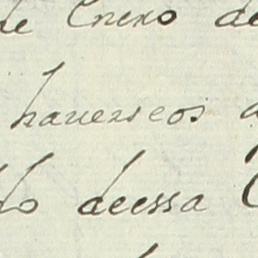 de Enero de
haverseos
deessa